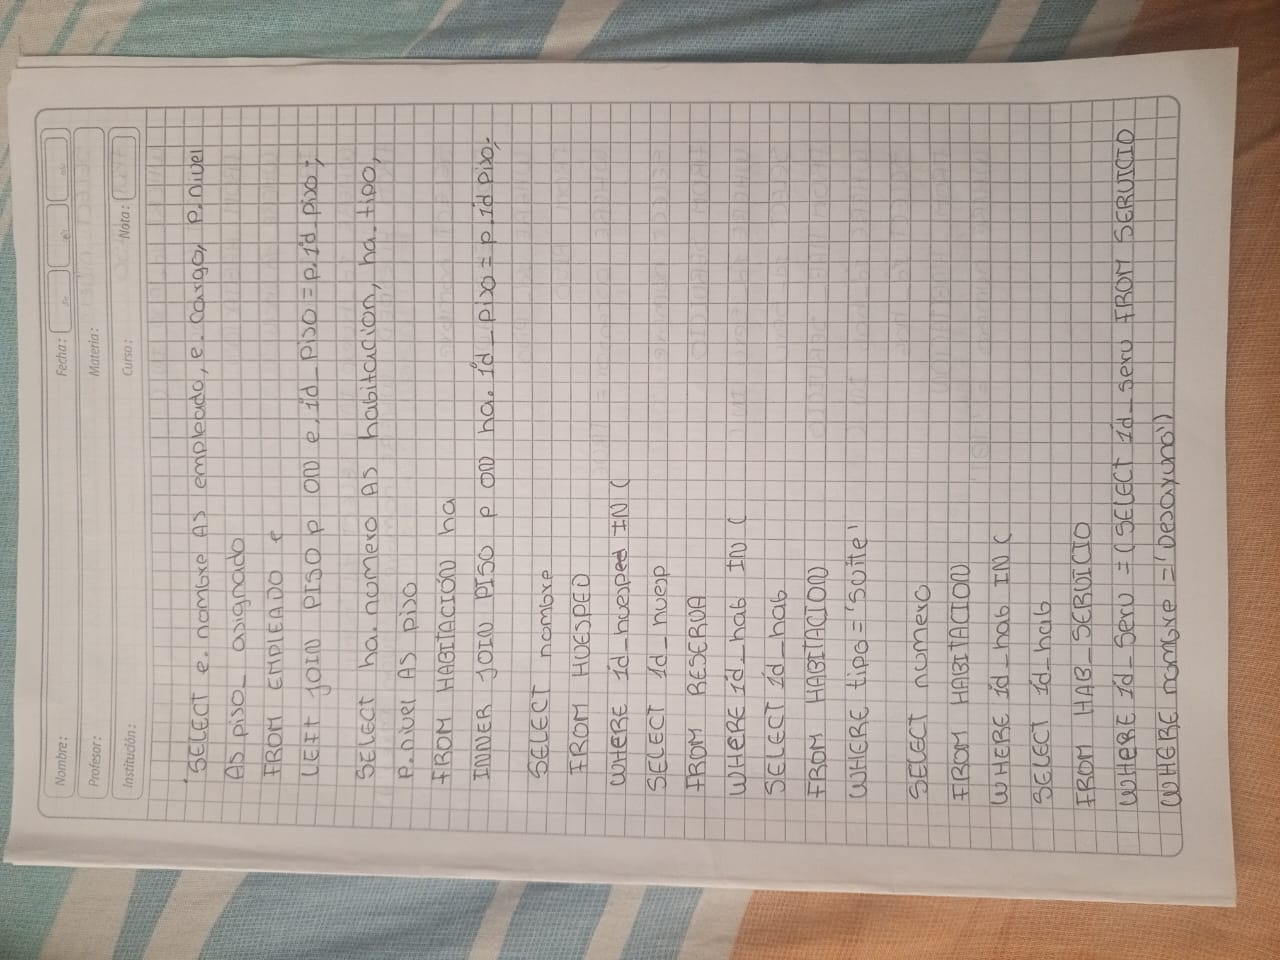 Nombre: Fecha:
Profesor: Materia:
Institución: Curso: Nota:
SELECT e.nombre AS empleado, e.cargo, p.nivel
AS piso_asignado
FROM EMPLEADO e
LEFT JOIN PISO p ON e.id_piso = p.id piso;
SELECT ha.numero AS habitacion, ha.tipo,
p.nivel AS piso
FROM HABITACIÓN ha
INNER JOIN PISO p ON ha.id_piso = p.id piso;
SELECT nombre
FROM HUESPED
WHERE id_huesped IN (
SELECT id_huesp
FROM RESERVA
WHERE id_hab IN (
SELECT id_hab
FROM HABITACION
WHERE tipo='suite'
SELECT numero
FROM HABITACION
WHERE id_hab IN (
SELECT id_hab
FROM HAB_SERVICIO
WHERE id_serv = (SELECT id_serv FROM SERVICIO
WHERE nombre ='Desayuno'))